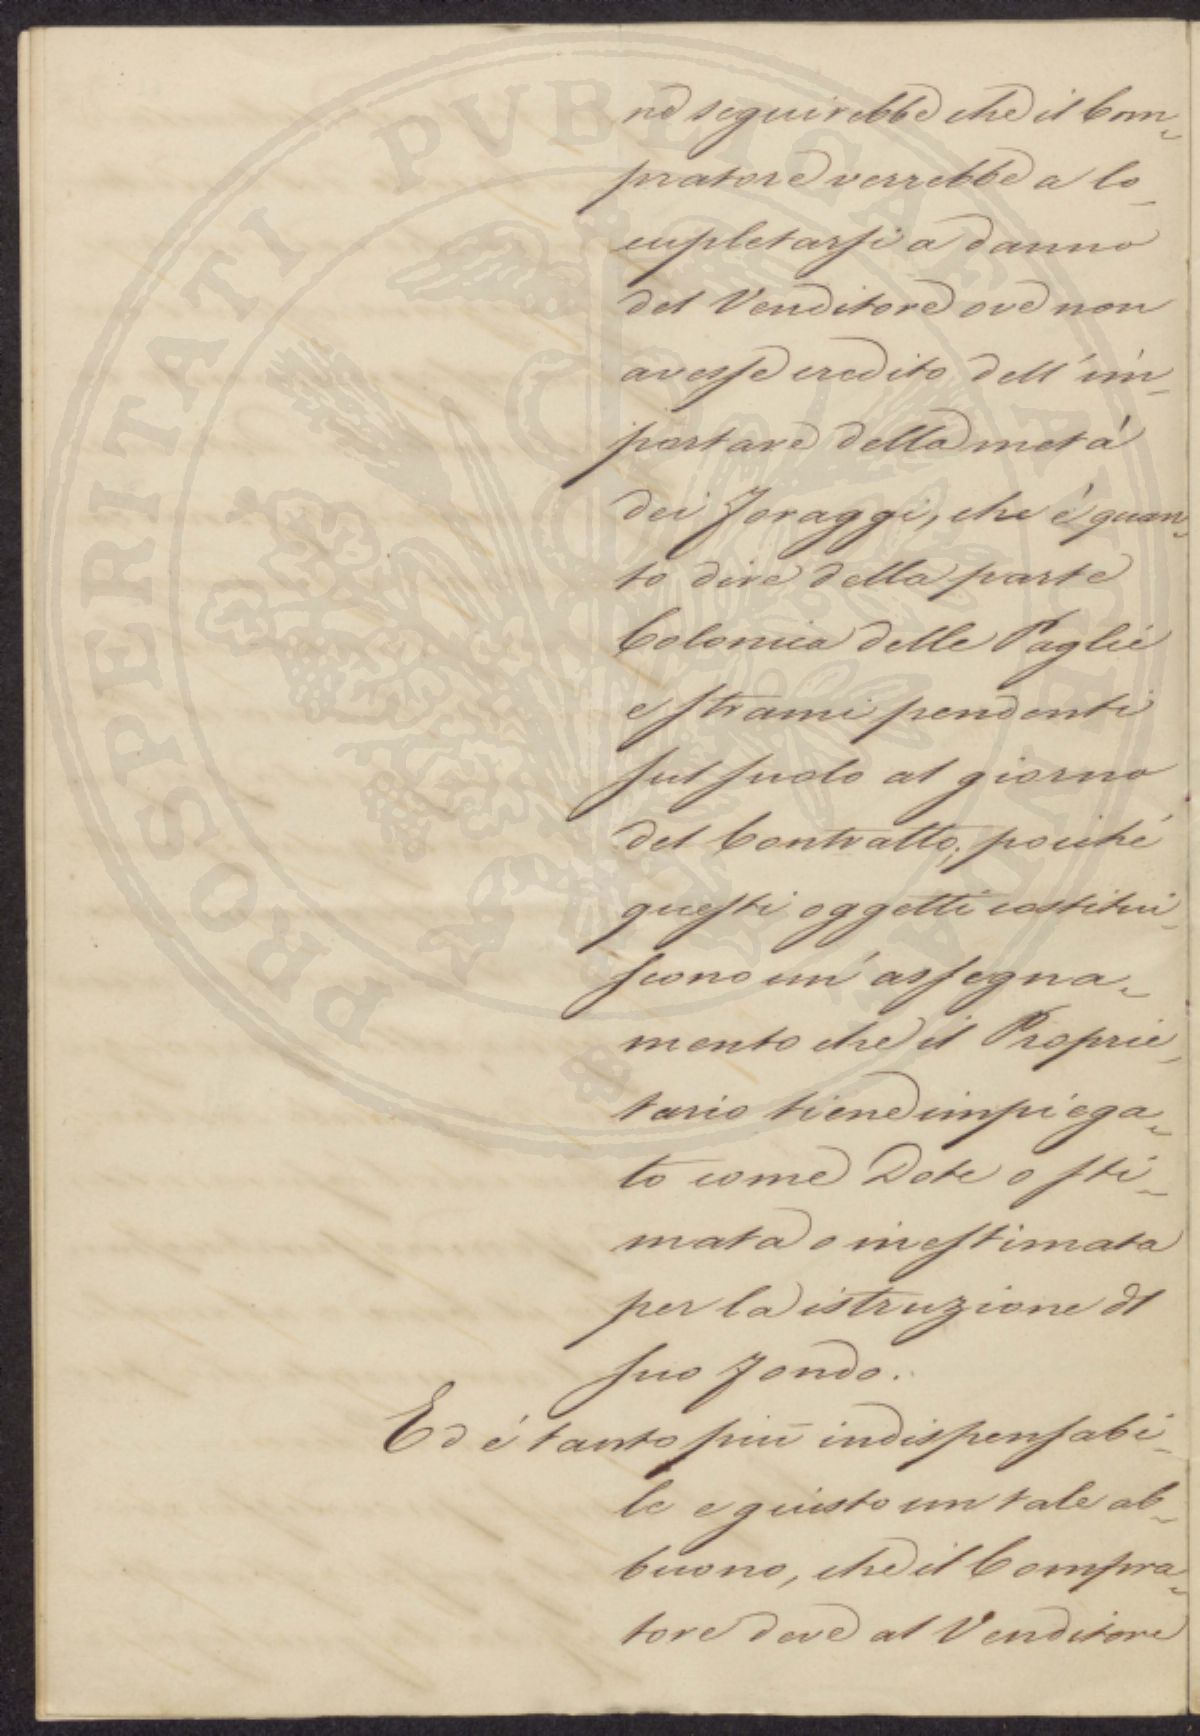 ne seguirebbe che il Com-
pratore verrebbe a lo-
cupletarsi a danno
del Venditore ove non
avesse credito dell' im-
portare della metà
dei Foraggi, che è quan-
to dire della parte
Colonica delle Paglie
e strami pendenti
sul suolo al giorno
del Contratto; poiché
questi oggetti costitui-
scono un' assegna-
mento che il Proprie-
tario tiene impiega-
to come Dote o sti-
mata o inestimata
per la istruzione del
suo Fondo.
Ed è tanto più indispensabi-
le e giusto un tale ab-
buono, che il Compra-
tore deve al Venditore
PROSPERITATI PVBLICAE AVGENDAE